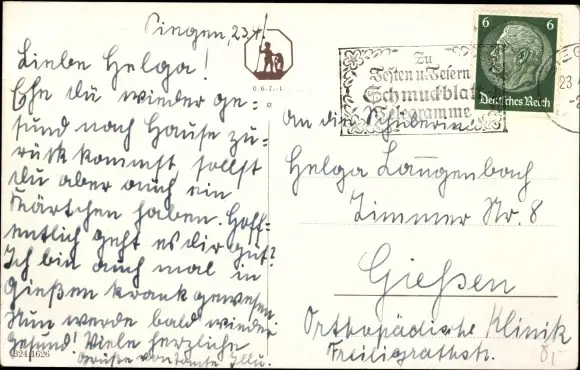 Singen, 23.4.
Liebe Helga!
Ehe du wieder ge-
sund nach Hause zu-
rück kommst sollst
du aber auch ein
Kärtchen haben. Hoff-
entlich geht es dir gut?
Ich bin auch mal in
Gießen krank gewesen.
Nun werde bald wieder
gesund! Viele herzliche
Grüße von Tante Illu.
324 1626
O.G.Z.-L.
Zu
Festen u. Feiern
Schmuckblatt
Telegramme
6 6
Deutsches Reich
23
An die Schülerin
Helga Langenbach
Zimmer Nr. 8
Gießen
Orthopädische Klinik
Freiligrathstr.
8,-